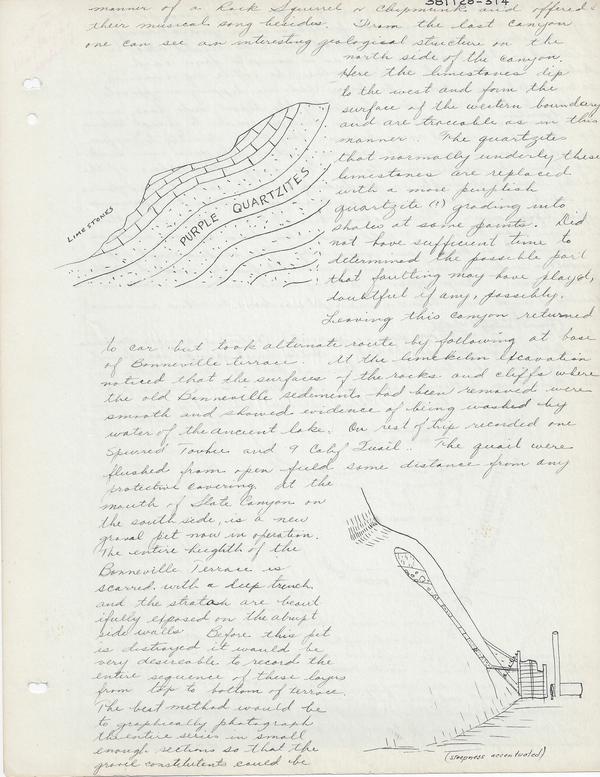 381128-314
manner of a Rock Squirrel or Chipmunk and offered
their musical song besides. From the last canyon
one can see an interesting geological structure on the
north side of the canyon.
Here the limestones dip
to the west and form the
surface of the western boundary
and are traceable as in this
manner. The quartzites
that normally underly these
limestones are replaced
with a more purplish
quartzite (?) grading into
shales at some points. Did
not have sufficient time to
determined the possible part
that faulting may have played,
doubtful if any, possibly.
Leaving this canyon returned
LIMESTONES
PURPLE QUARTZITES
to car but took alternate route by following at base
of Bonneville terrace. At the limekiln excavation
noticed that the surfaces of the rocks and cliffs where
the old Bonneville sediments had been removed were
smooth and showed evidence of being washed by
water of the ancient lake. On rest of trip recorded one
Spurred Towhee and 9 Calif Quail.. The quail were
flushed from open field some distance from any
protective covering. At the
mouth of Slate Canyon on
the south side, is a new
graval pit now in operation.
The entire heighth of the
Bonneville Terrace is
scarred with a deep trench,
and the stratah are beaut
ifully exposed on the abrupt
side walls. Before this pit
is distroyed it would be
very desireable to record the
entire sequence of these layers
from top to bottom of terrace.
The best method would be
to graphically photograph
the entire series in small
enough sections so that the
gravil constitutents could be
(steepness accentuated)